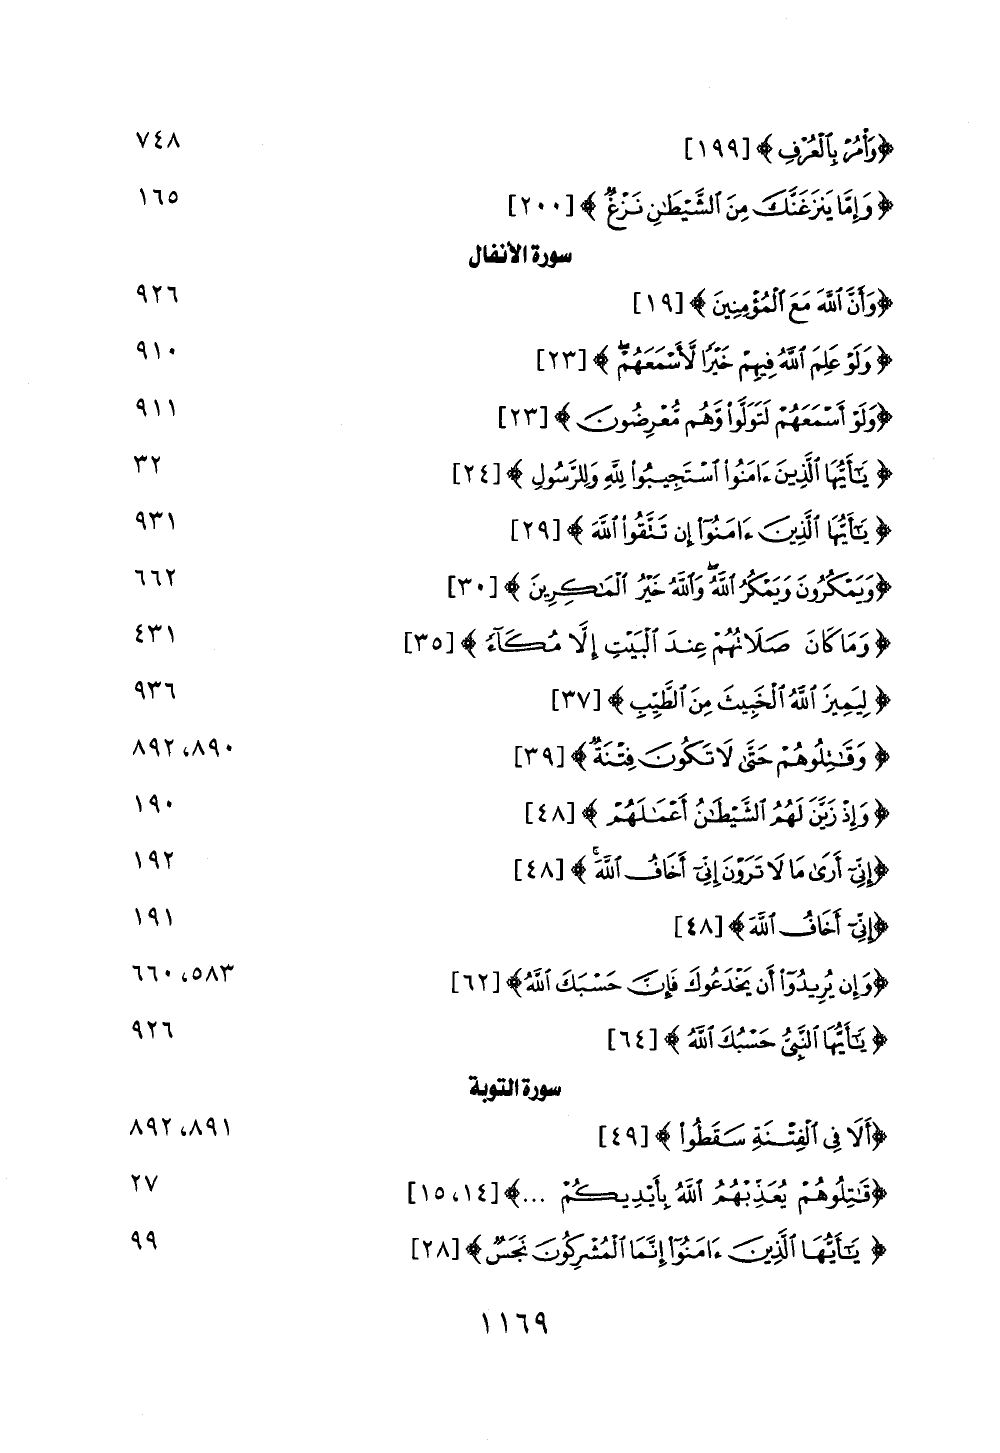 ﴿وَأْمُرْ بِٱلْعُرْفِ﴾ [١٩٩] ٧٤٨
﴿وَإِمَّا يَنزَغَنَّكَ مِنَ ٱلشَّيْطَٰنِ نَزْغٌ﴾ [٢٠٠] ١٦٥
سورة الأنفال
﴿وَأَنَّ ٱللَّهَ مَعَ ٱلْمُؤْمِنِينَ﴾ [١٩] ٩٢٦
﴿وَلَوْ عَلِمَ ٱللَّهُ فِيهِمْ خَيْرًا لَّأَسْمَعَهُمْ ۖ﴾ [٢٣] ٩١٠
﴿وَلَوْ أَسْمَعَهُمْ لَتَوَلَّوا۟ وَّهُم مُّعْرِضُونَ﴾ [٢٣] ٩١١
﴿يَٰٓأَيُّهَا ٱلَّذِينَ ءَامَنُوا۟ ٱسْتَجِيبُوا۟ لِلَّهِ وَلِلرَّسُولِ﴾ [٢٤] ٣٢
﴿يَٰٓأَيُّهَا ٱلَّذِينَ ءَامَنُوٓا۟ إِن تَتَّقُوا۟ ٱللَّهَ﴾ [٢٩] ٩٣١
﴿وَيَمْكُرُونَ وَيَمْكُرُ ٱللَّهُ ۖ وَٱللَّهُ خَيْرُ ٱلْمَٰكِرِينَ﴾ [٣٠] ٦٦٢
﴿وَمَا كَانَ صَلَاتُهُمْ عِندَ ٱلْبَيْتِ إِلَّا مُكَآءً﴾ [٣٥] ٤٣١
﴿لِيَمِيزَ ٱللَّهُ ٱلْخَبِيثَ مِنَ ٱلطَّيِّبِ﴾ [٣٧] ٩٣٦
﴿وَقَٰتِلُوهُمْ حَتَّىٰ لَا تَكُونَ فِتْنَةٌ﴾ [٣٩] ٨٩٠، ٨٩٢
﴿وَإِذْ زَيَّنَ لَهُمُ ٱلشَّيْطَٰنُ أَعْمَٰلَهُمْ﴾ [٤٨] ١٩٠
﴿إِنِّىٓ أَرَىٰ مَا لَا تَرَوْنَ إِنِّىٓ أَخَافُ ٱللَّهَ ۚ﴾ [٤٨] ١٩٢
﴿إِنِّىٓ أَخَافُ ٱللَّهَ﴾ [٤٨] ١٩١
﴿وَإِن يُرِيدُوٓا۟ أَن يَخْدَعُوكَ فَإِنَّ حَسْبَكَ ٱللَّهُ﴾ [٦٢] ٥٨٣، ٦٦٠
﴿يَٰٓأَيُّهَا ٱلنَّبِىُّ حَسْبُكَ ٱللَّهُ﴾ [٦٤] ٩٢٦
سورة التوبة
﴿أَلَا فِى ٱلْفِتْنَةِ سَقَطُوا۟﴾ [٤٩] ٨٩١، ٨٩٢
﴿قَٰتِلُوهُمْ يُعَذِّبْهُمُ ٱللَّهُ بِأَيْدِيكُمْ ...﴾ [١٤، ١٥] ٢٧
﴿يَٰٓأَيُّهَا ٱلَّذِينَ ءَامَنُوٓا۟ إِنَّمَا ٱلْمُشْرِكُونَ نَجَسٌ﴾ [٢٨] ٩٩
١١٦٩